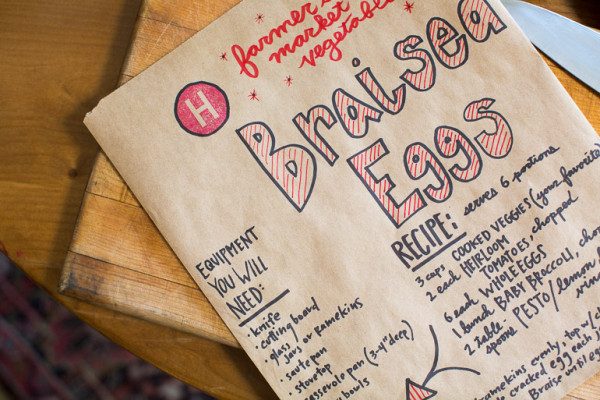 farmer's
market
vegetable
H
Braised
Eggs
EQUIPMENT
YOU WILL
NEED:
• knife
• cutting board
• glass
jars or ramekins
• saute pan
• stovetop
casserole pan (3-4" deep)
bowls
RECIPE: serves 6 portions
3 cups COOKED VEGGIES (your favorite)
2 each HEIRLOOM
TOMATOES, chopped
6 each WHOLE EGGS
1 bunch BABY BROCCOLI,
2 table
spoons PESTO/lemon
ramekins evenly, top w/
cracked egg each
Braise until